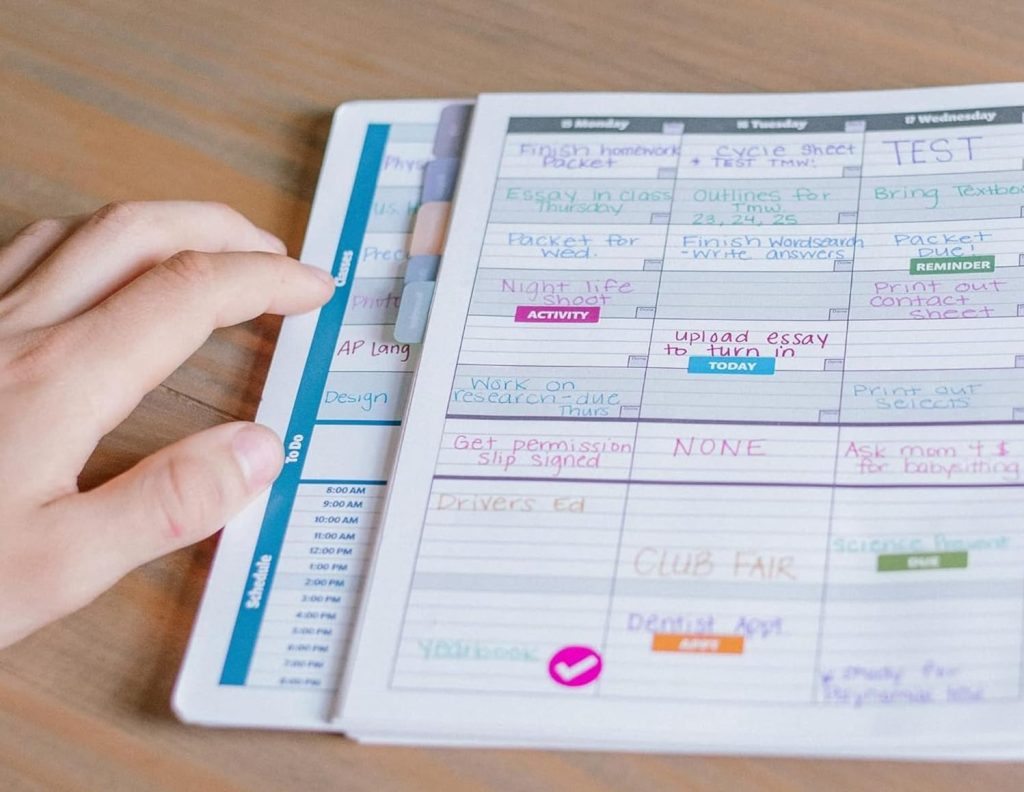 15 Monday
16 Tuesday
17 Wednesday
Classes
Phys
Finish homework
Packet
cycle sheet
+ TEST TMW!
TEST
U.S. H
Essay in class
Thursday
Outlines for
Tmw.
23, 24, 25
Bring Textbo
Prec
Packet for
Wed.
Finish wordsearch
-Write answers
Packet
Due!
REMINDER
Photo
Night life
shoot
ACTIVITY
Print out
contact
sheet
AP Lang
upload essay
to turn in
TODAY
Design
Work on
research-due
Thurs
Print out
selects
To Do
Get permission
slip signed
NONE
Ask mom 4 $
for babysitting
Schedule
8:00 AM
9:00 AM
10:00 AM
11:00 AM
12:00 PM
1:00 PM
2:00 PM
3:00 PM
4:00 PM
5:00 PM
6:00 PM
7:00 PM
8:00 PM
Drivers Ed
Yearbook
CLUB FAIR
Dentist Appt.
APPT
Science
DUE
study for